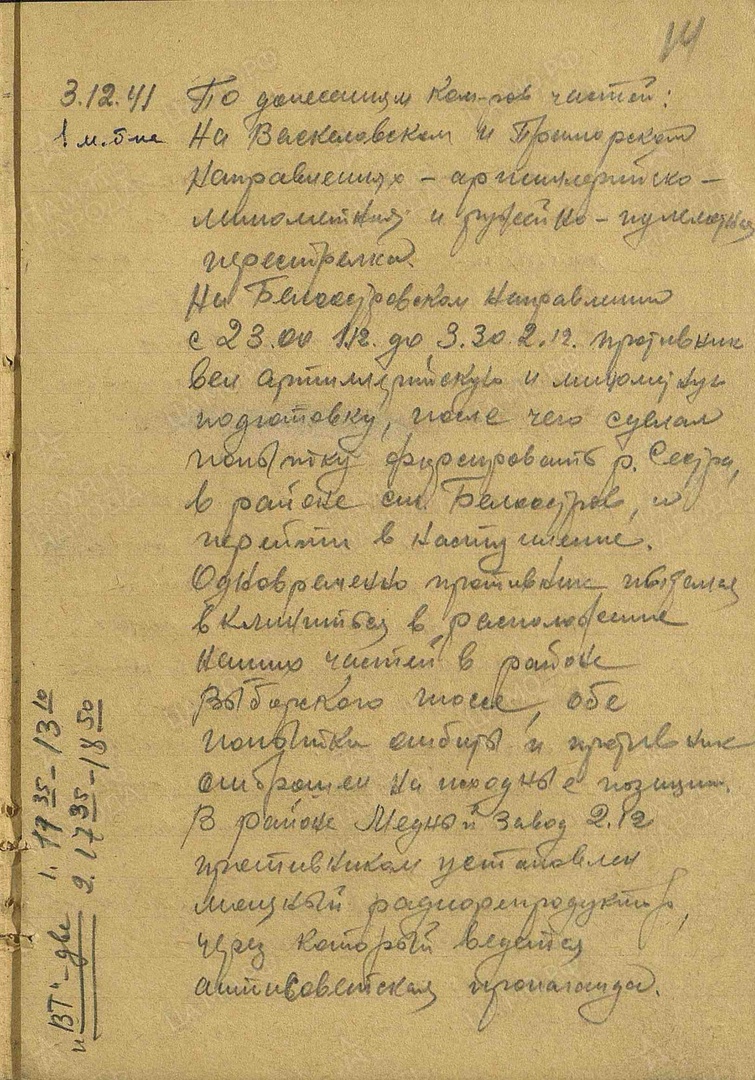 14
3.12.41 По донесениям ком-ров частей:
1 м.б-на На Васкеловском и Приморском
направлениях – артиллерийско-
миномётная и ружейно-пулемётная
перестрелка.
На Белоостровском направлении
с 23.00 1.12. до 3.30 2.12. противник
вел артиллерийскую и миномётную
подготовку, после чего сделал
попытку форсировать р. Сестра,
в районе ст. Белоостров, и
перейти в наступление.
Одновременно противник пытался
вклиниться в расположение
наших частей в районе
Выборгского шоссе, обе
попытки отбиты и противник
отброшен на исходные позиции.
В районе Медный Завод 2.12
противником установлен
мощный радиорепродуктор,
через который ведется
антисоветская пропаганда.
и ВТ"-две 1. 35-13 10
2. 17 35-18 50